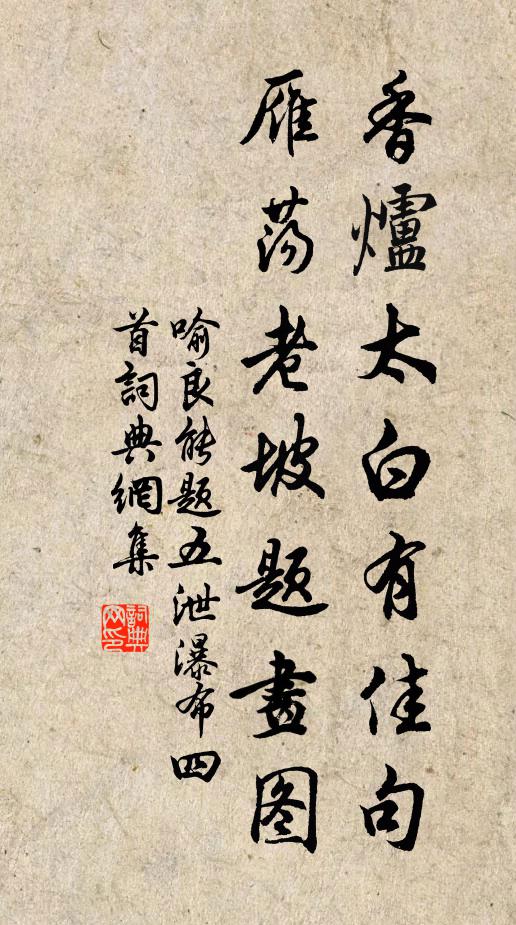 香爐太白有佳句
雁荡老坡题畫图
喻良能题五泄瀑布四
首詞典網集
詞典
网印